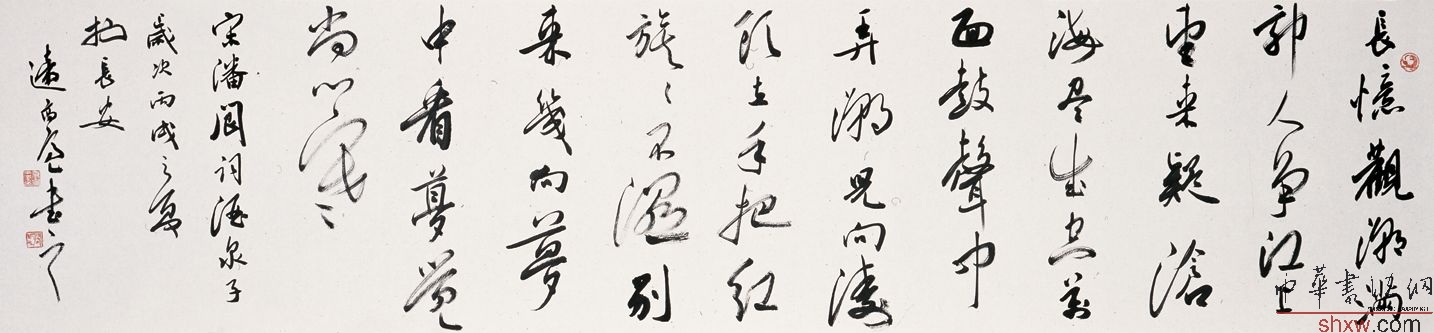 長憶觀潮滿
郭人爭江上
望来疑滄
海尽成空萬
面鼓聲中
弄潮兒向濤
頭立手把紅
旗〻不濕別
来幾向夢
中看夢覺
尚心寒
宋潘閬詞酒泉子
歲次丙戌之夏
於長安
書之
中華書網
shxw.com